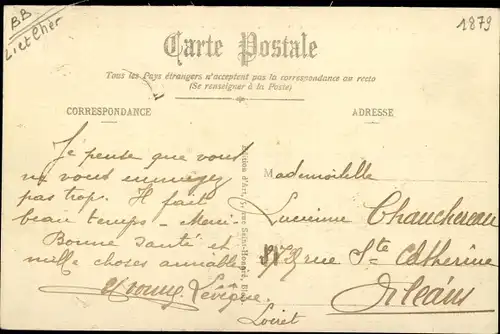 BB
L et Cher
1879
Carte Postale
Tous les Pays étrangers n'acceptent pas la correspondance au recto
(Se renseigner à la Poste)
CORRESPONDANCE
ADRESSE
Je pense que vous
ne vous ennuyez
pas trop. Il fait
beau temps - Merci
Bonne santé et
mille choses aimables
Lévêque
Édition d'Art, rue Saint-Honoré, Bl
Mademoiselle
Lucienne Chauchereau
rue Ste Catherine
Orléans
Loiret